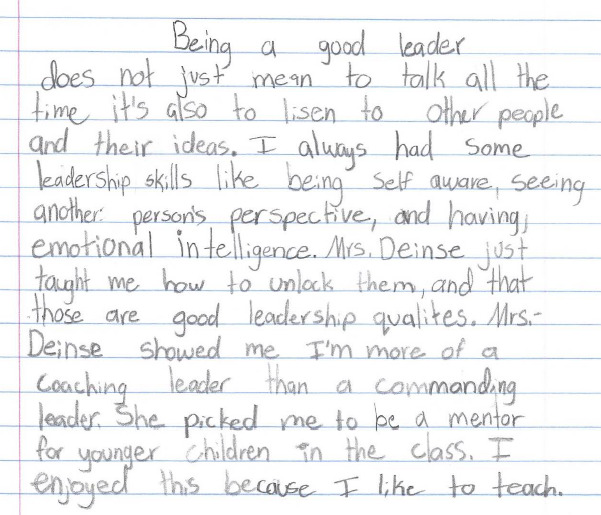 Being a good leader
does not just mean to talk all the
time it's also to lisen to other people
and their ideas. I always had some
leadership skills like being self aware, seeing
another person's perspective, and having,
emotional intelligence. Mrs. Deinse just
taught me how to unlock them, and that
those are good leadership qualites. Mrs.-
Deinse showed me I'm more of a
coaching leader than a commanding
leader. She picked me to be a mentor
for younger children in the class. I
enjoyed this because I like to teach.